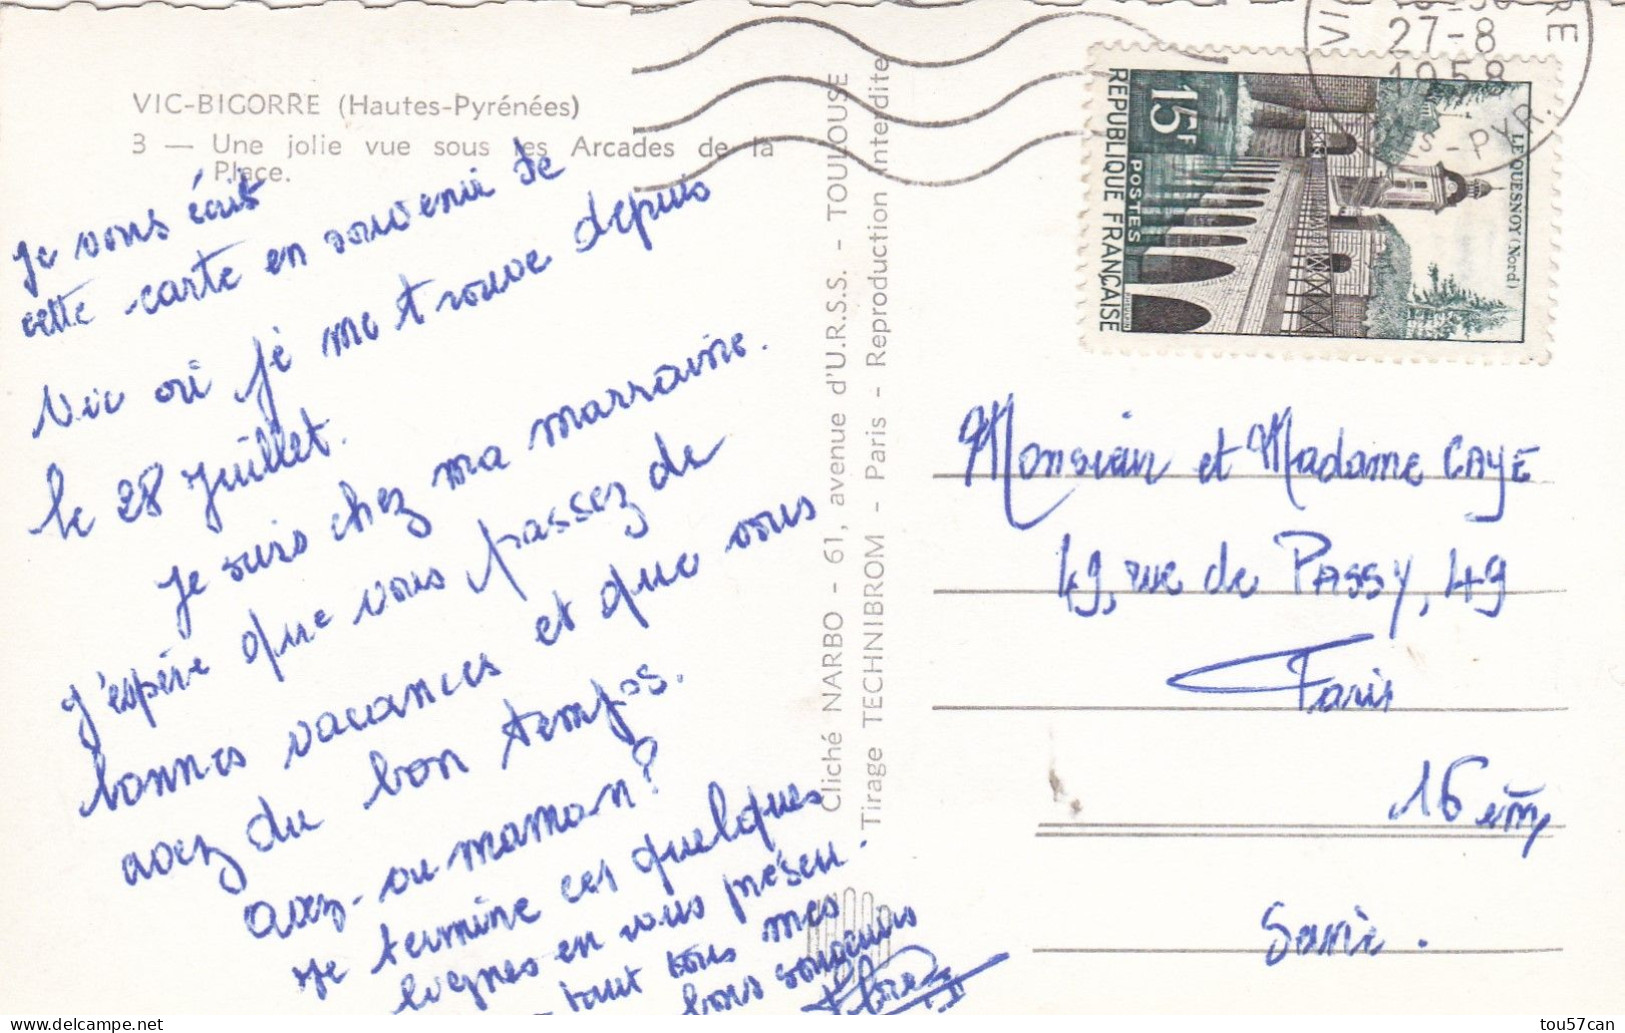 VIC-BIGORRE (Hautes-Pyrénées)
3 — Une jolie vue sous les Arcades de la
Place.
Je vous écris
cette carte en souvenir de
Vic où je me trouve depuis
le 28 Juillet.
Je suis chez ma marraine.
J'espère que vous passez de
bonnes vacances et que vous
avez du bon temps.
Avez-vu maman?
Je termine ces quelques
lignes en vous présen-
tant tous mes
bons souvenirs
Cliché NARBO - 61, avenue d'U.R.S.S. - TOULOUSE
Tirage TECHNIBROM - Paris - Reproduction interdite
27-8
1958
15F
POSTES
REPUBLIQUE FRANÇAISE
LE QUESNOY (Nord)
Monsieur et Madame CAYE
49, rue de PASSY, 49
Paris
16 èm,
Seine.
tou57can